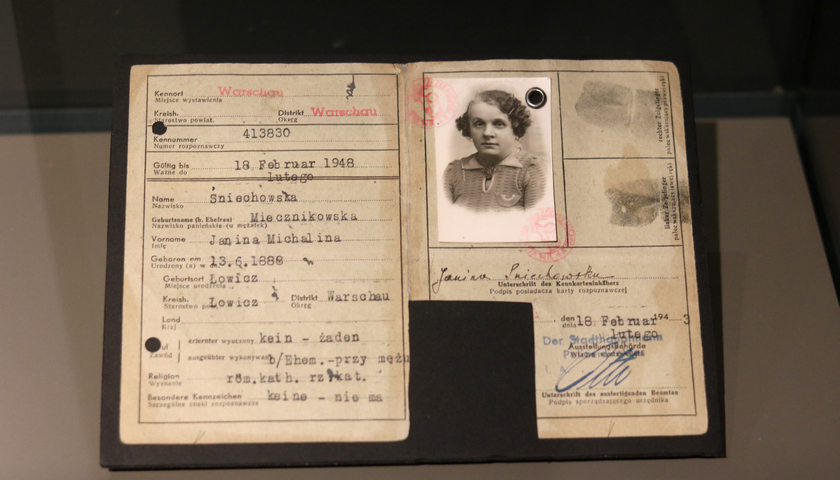 Kennort Warschau
Miejsce wystawienia
Kreish. Distrikt Warschau
Starostwo powiat. Okręg
Kennummer 413830
Numer rozpoznawczy
Gültig bis 18 Februar 1948
Ważne do lutego
Name Sniechowska
Nazwisko
Geburtsname (b. Ehefrau) Miecznikowska
Nazwisko panieńskie (u mężatek)
Vorname Janina Michalina
Imię
Geboren am 13.6.1888
Urodzony (a) w dn.
Geburtsort Łowicz
Miejsce urodzenia
Kreish. Łowicz Distrikt Warschau
Starostwo pow. Okręg
Land
Kraj
erlernter wyuczony kein - żaden
Zawód ausgeübter wykonywan b/Ehem.-przy mężu
Religion röm.kath. rz.kat.
Wyznanie
Besondere Kennzeichen keine - nie ma
Szczególne znaki rozpoznawcze
rechter Zeigefinger
palec wskazujący prawej ręki
linker Zeigefinger
palec wskazujący lewej ręki
Janina Sniechowska
Unterschrift des Kennkarteninhabers
Podpis posiadacza karty rozpoznawczej
den 18 Februar 194 3
dnia lutego
Der Stadthauptmann
Ausstellungsbehörde
Unterschrift des ausfertigenden Beamten
Podpis sporządzającego urzędnika